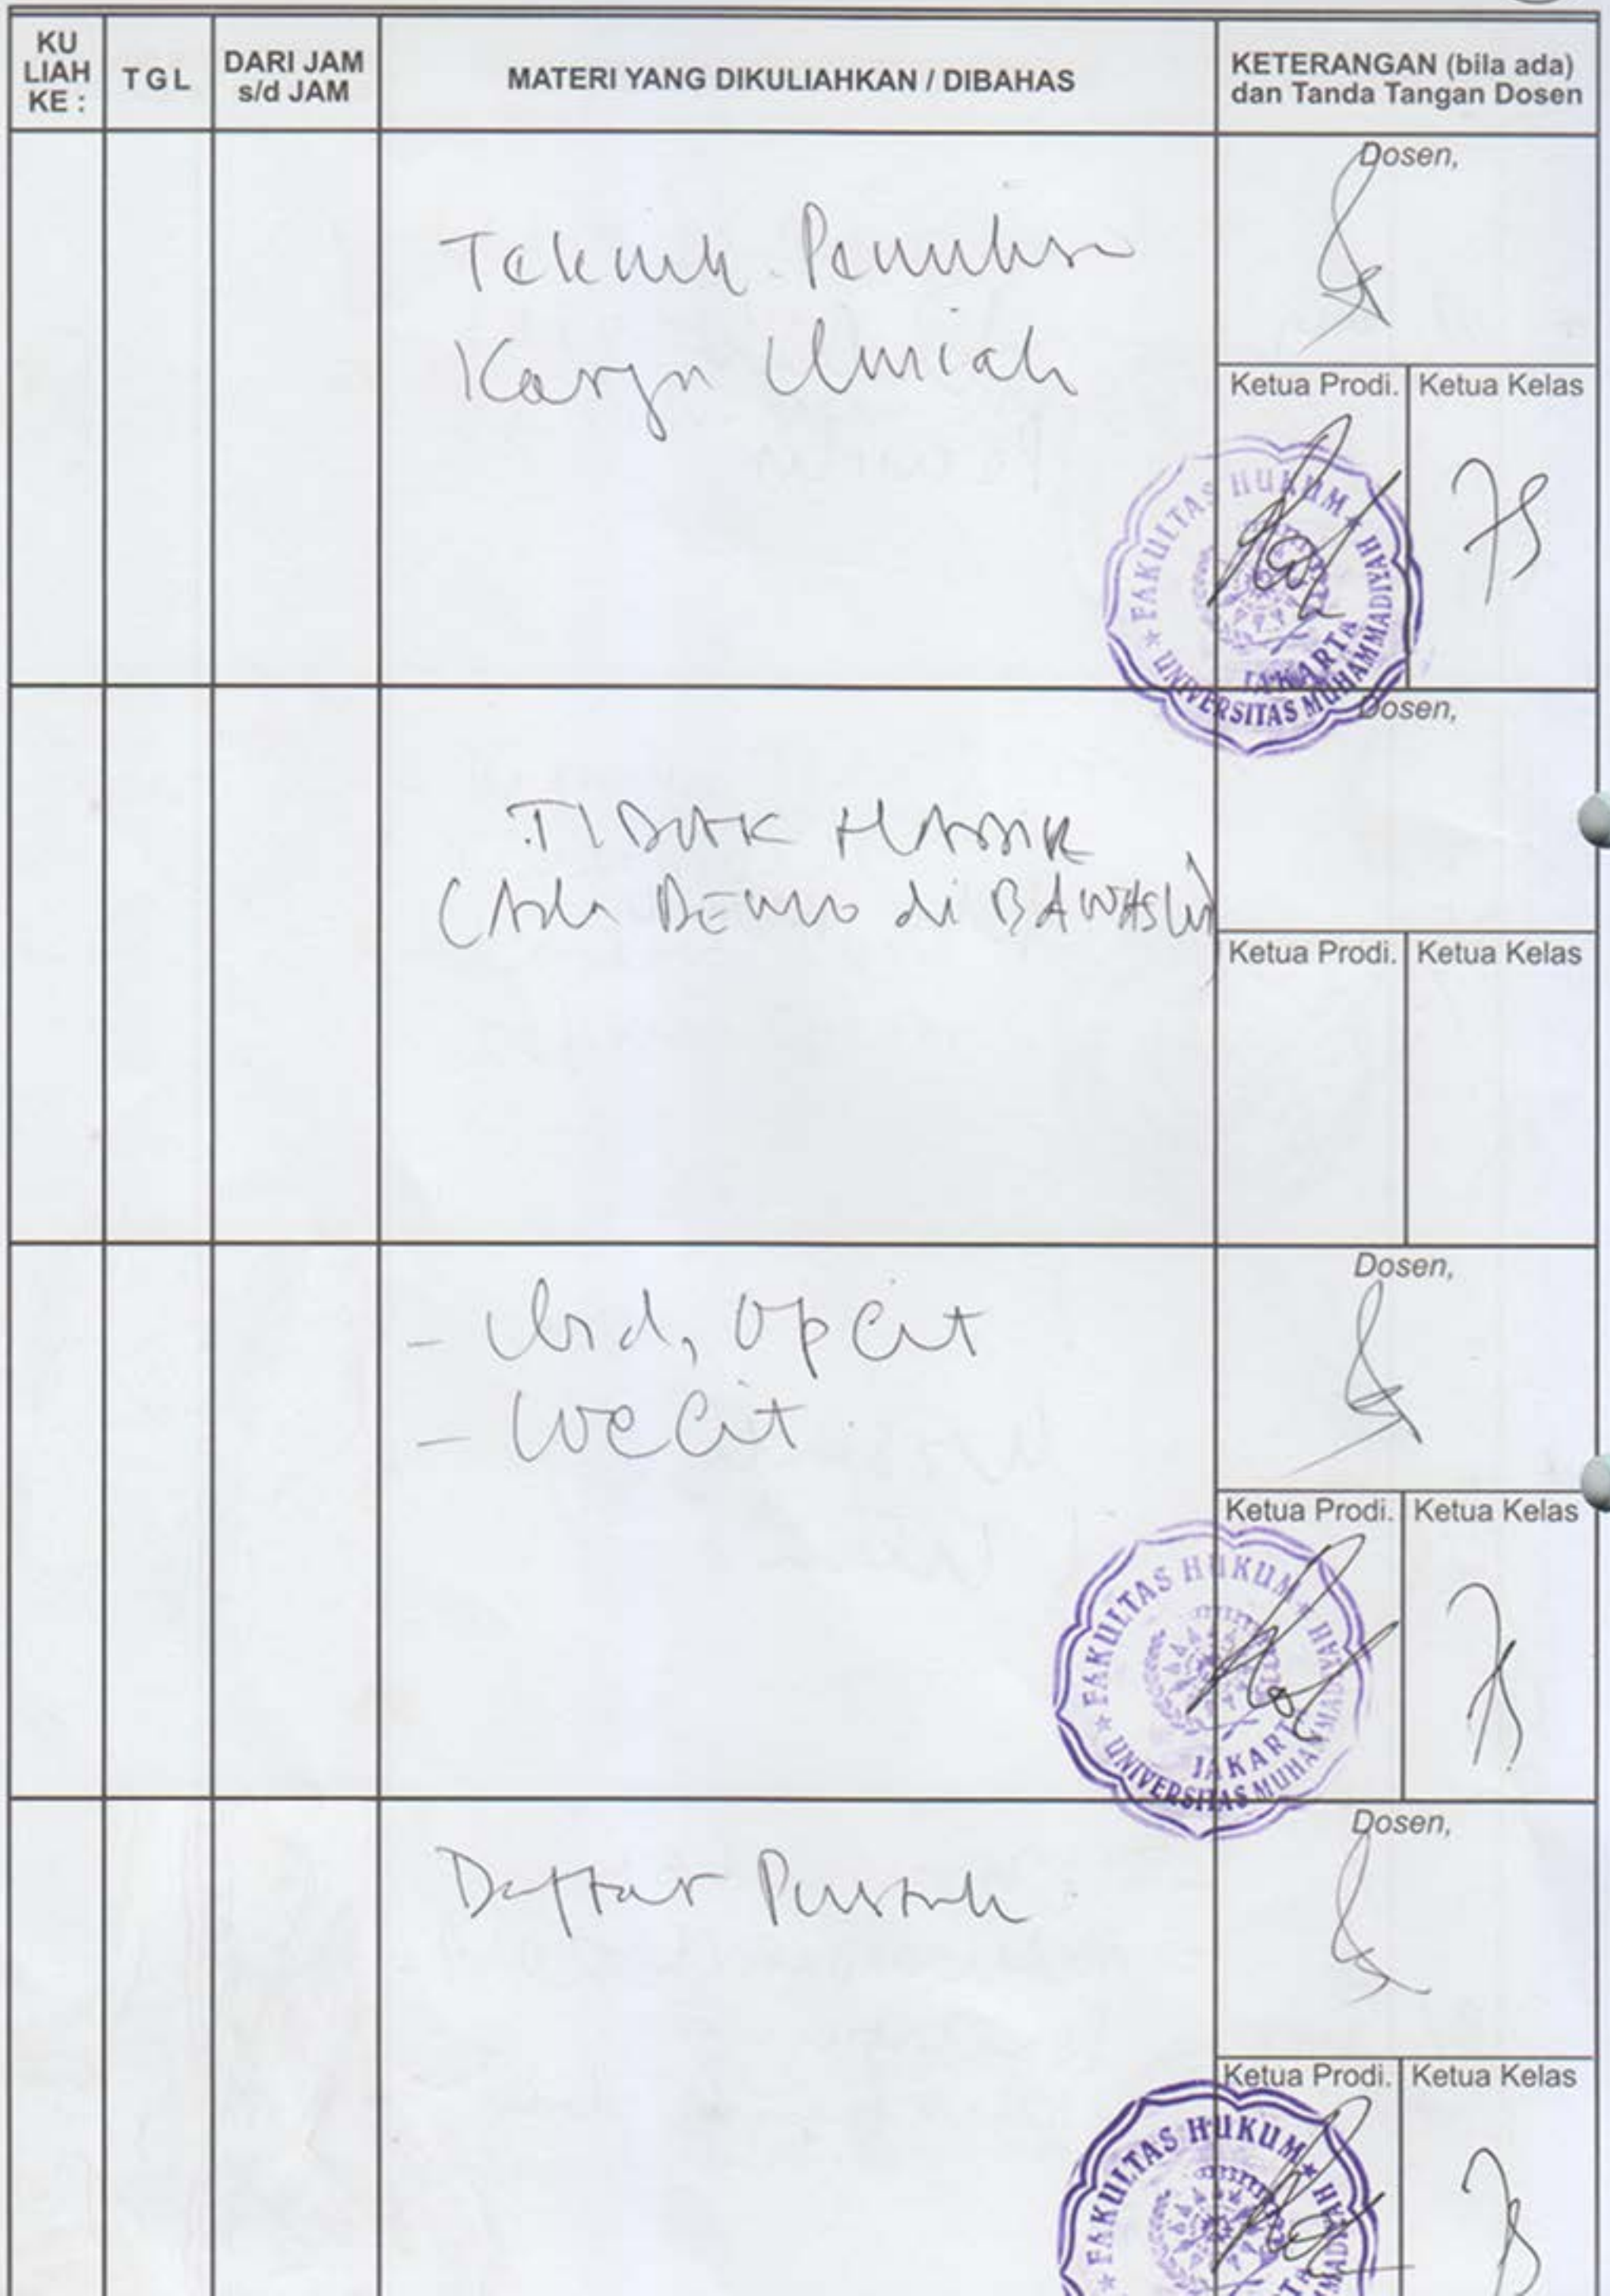 KU
LIAH
KE :
TGL
DARI JAM
s/d JAM
MATERI YANG DIKULIAHKAN / DIBAHAS
KETERANGAN (bila ada)
dan Tanda Tangan Dosen
Teknik Penulisan
Karya Ilmiah
Dosen,
Ketua Prodi.
Ketua Kelas
FAKULTAS HUKUM
UNIVERSITAS MUHAMMADIYAH
JAKARTA
TIDAK HADIR
(Ada DEMO di BAWASLU)
Dosen,
Ketua Prodi.
Ketua Kelas
- Ibid, Op Cit
- Loc Cit
Dosen,
Ketua Prodi.
Ketua Kelas
FAKULTAS HUKUM
UNIVERSITAS MUHAMMADIYAH
JAKARTA
Daftar Pustaka
Dosen,
Ketua Prodi.
Ketua Kelas
FAKULTAS HUKUM